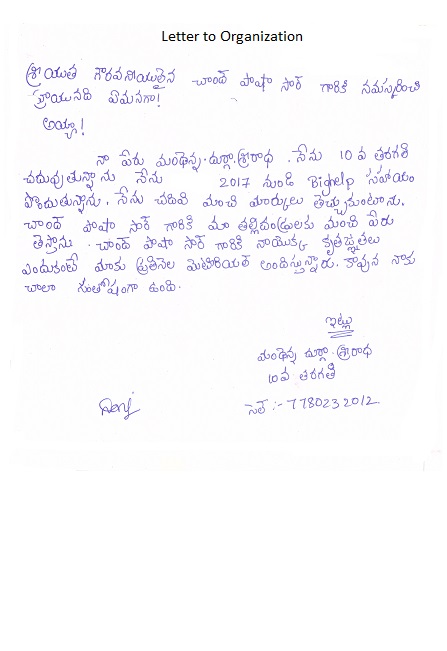 Letter to Organization
శ్రీయుత గౌరవనీయులైన చాంద్ పాషా సార్ గారికి నమస్కరించి
వ్రాయునది ఏమనగా!
అయ్యా!
నా పేరు మంథెన్న. దుర్గా. శ్రీరాధ. నేను 10 వ తరగతి
చదువుతున్నాను నేను 2017 నుండి Bighelp సహాయం
పొందుతున్నాను. నేను చదివి మంచి మార్కులు తెచ్చుకుంటాను.
చాంద్ పాషా సార్ గారికి మా తల్లిదండ్రులకు మంచి పేరు
తెస్తాను. చాంద్ పాషా సార్ గారికి నాయొక్క కృతజ్ఞతలు
ఎందుకంటే మాకు ప్రతినెల మెటీరియల్ అందిస్తున్నారు. కావున నాకు
చాలా సంతోషంగా ఉంది.
ఇట్లు
మంథెన్న దుర్గా. శ్రీరాధ
10 వ తరగతి
సెల్ :- 7780232012